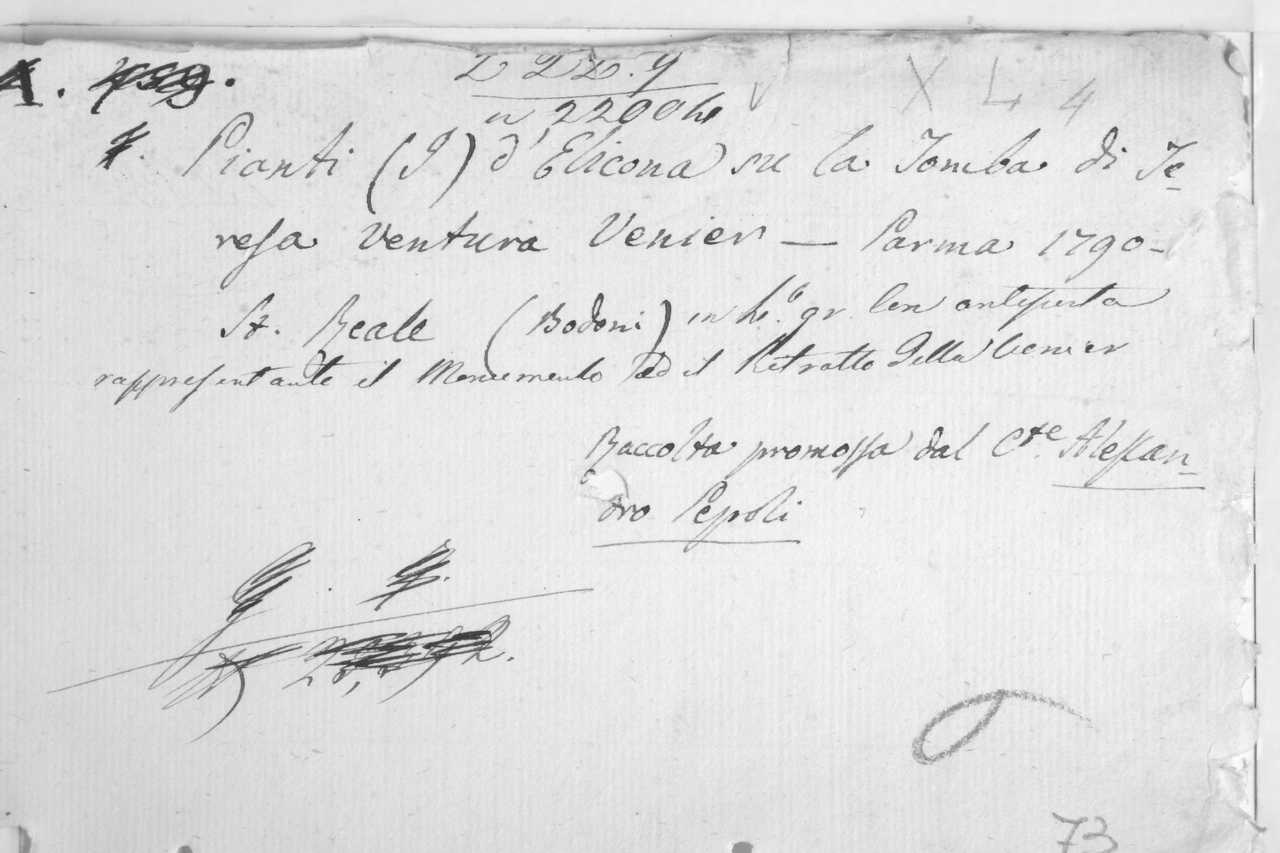 A.
X L 4
in 22004
Pianti (I) d'Elicona su la Tomba di Te-
resa Ventura Venier — Parma 1790-
St. Reale (Bodoni) in 4.º gr. con antiporta
rappresentante il Monumento ed il Ritratto della Venier
Raccolta promossa dal C.te Alessan-
dro Pepoli
73